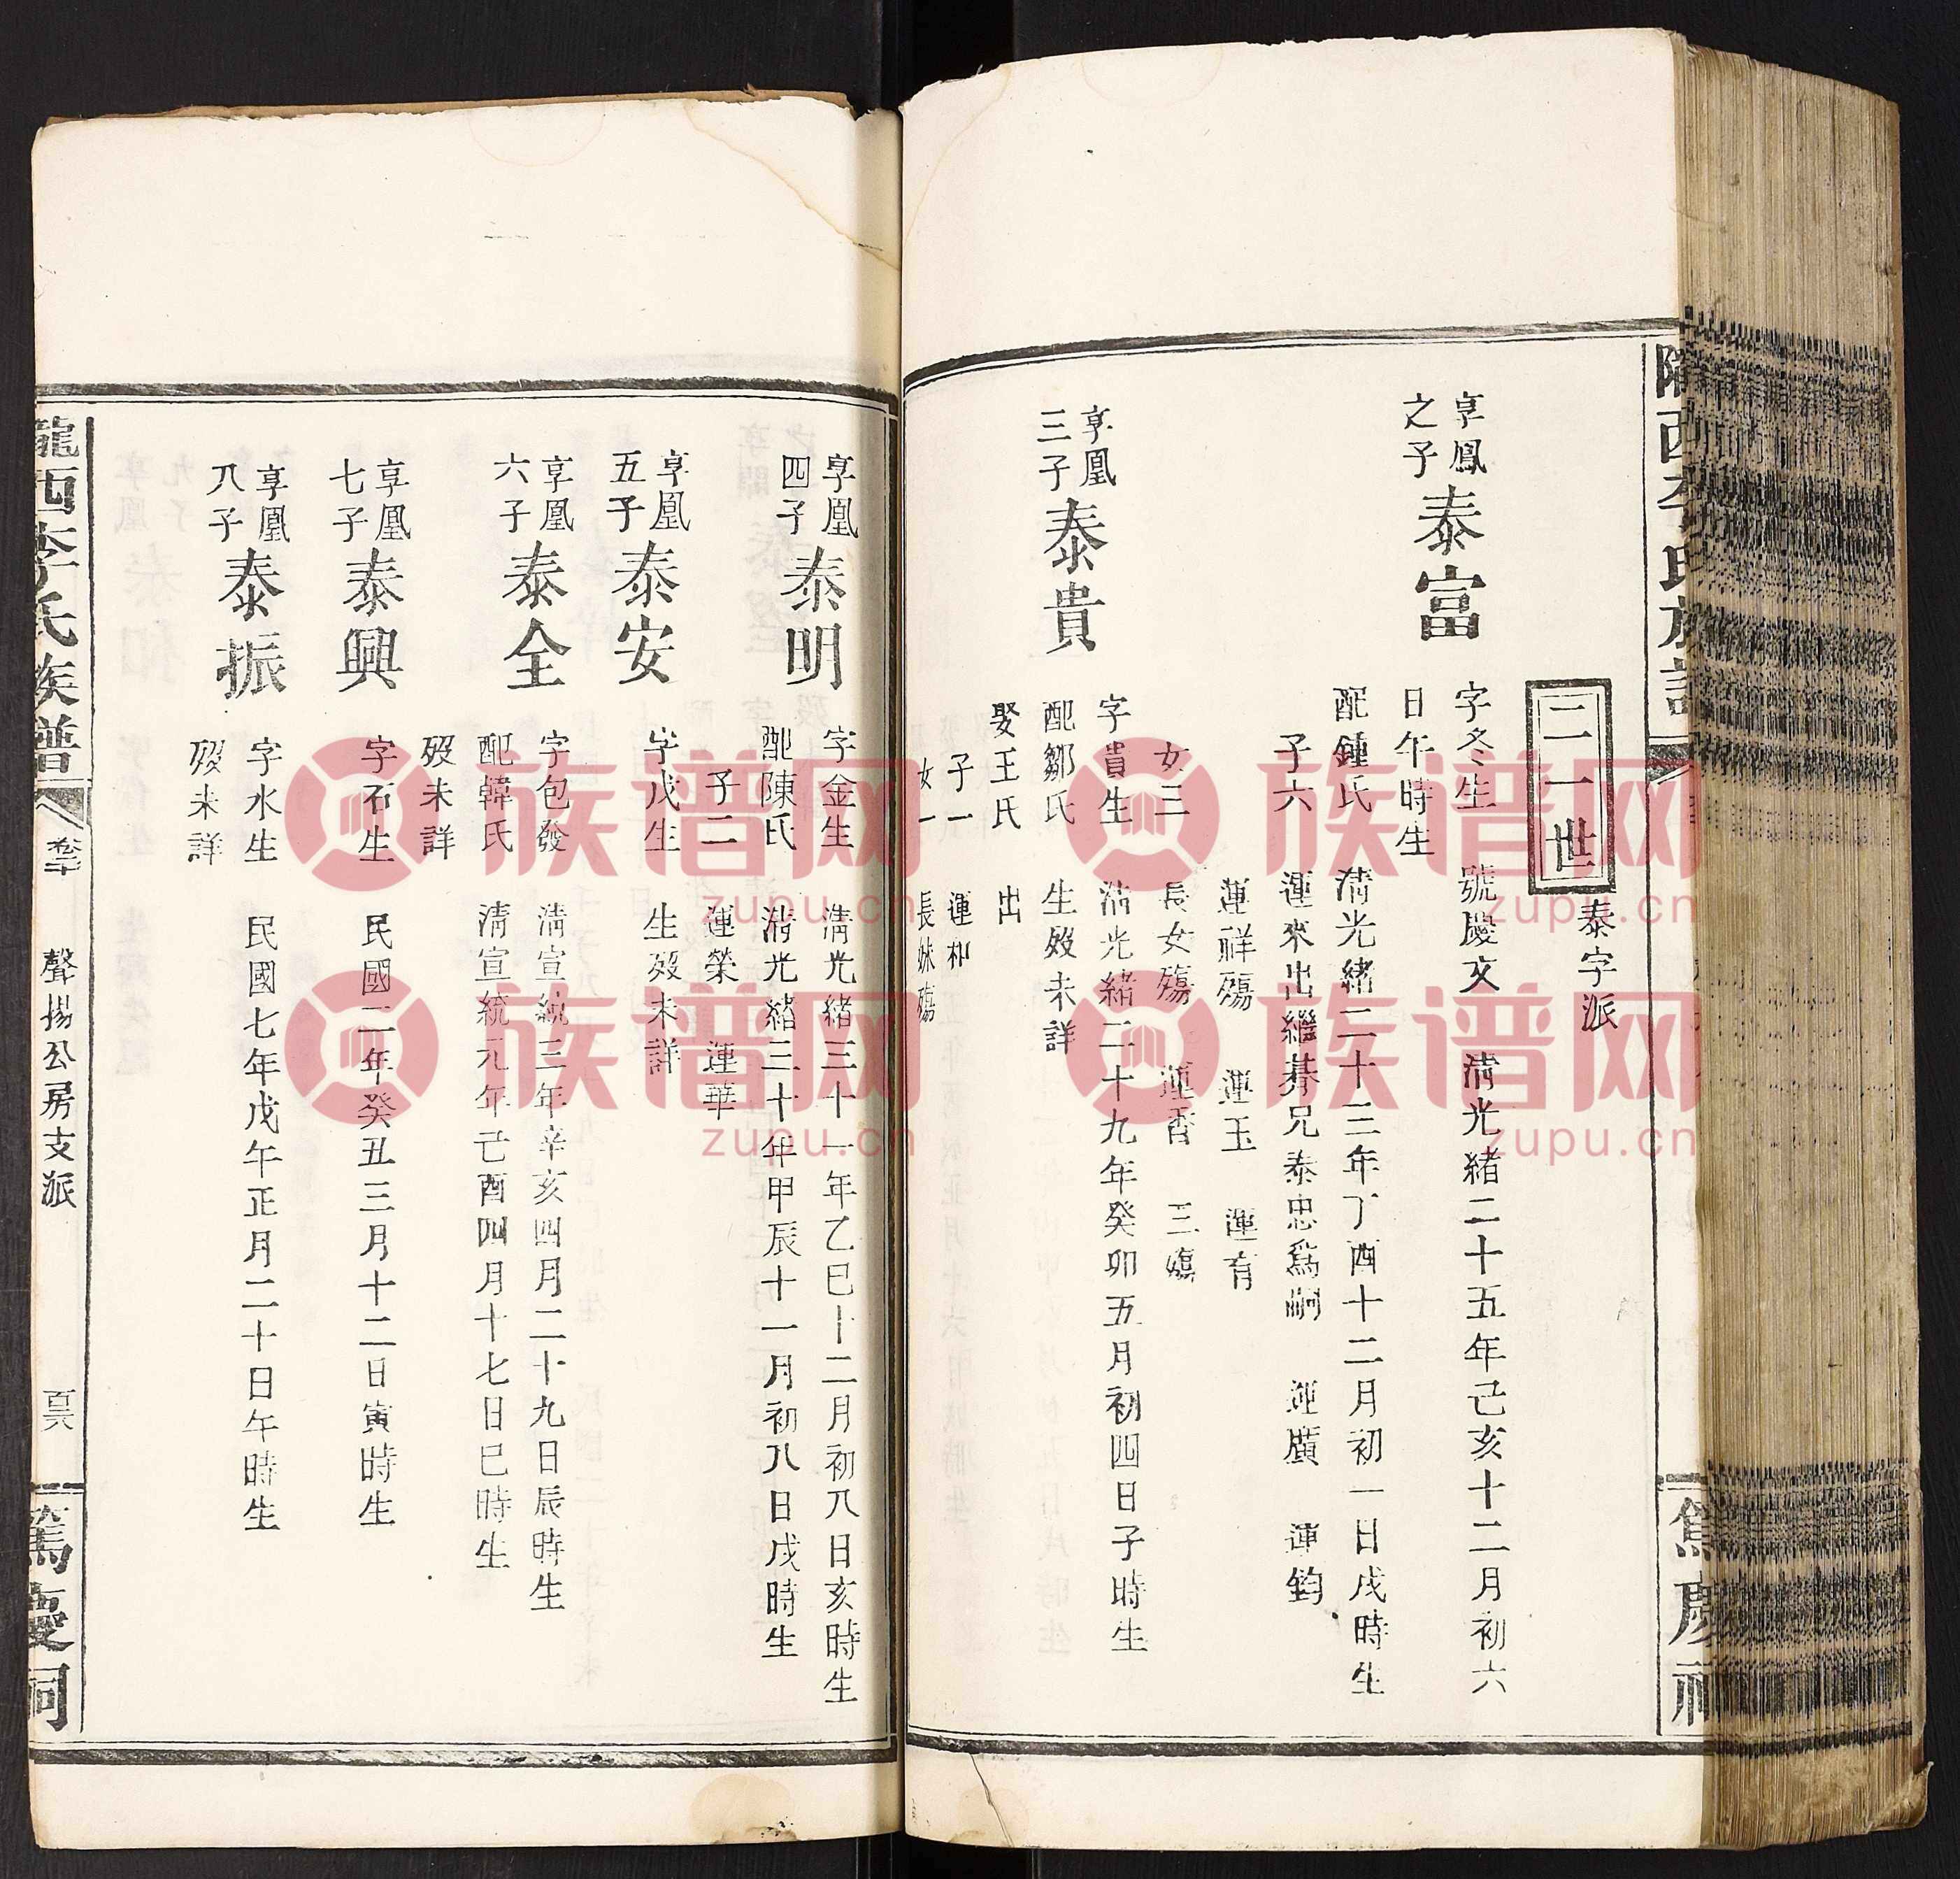 隴西李氏族譜
篤慶祠
二一世
泰字派
享鳳
之子
泰富
字冬生 號慶文 清光緒二十五年己亥十二月初六
日午時生
配鍾氏 清光緒二十三年丁酉十二月初一日戌時生
子六 運來出繼碁兄泰忠爲嗣 運廣 運鈞
運祥殤 運玉 運育
女三 長女殤 運香 三殤
享凰
三子
泰貴
字貴生 清光緒二十九年癸卯五月初四日子時生
配鄒氏 生歿未詳
娶王氏 出
子一 運和
女一 長妹殤
享凰
四子
泰明
字金生 清光緒三十一年乙巳十二月初八日亥時生
配陳氏 清光緒三十年甲辰十一月初八日戌時生
子二 運榮 運華
享凰
五子
泰安
字戊生 生歿未詳
享凰
六子
泰全
字包發 清宣統三年辛亥四月二十九日辰時生
配韓氏 清宣統元年己酉四月十七日巳時生
歿未詳
享凰
七子
泰興
字石生 民國二年癸丑三月十二日寅時生
享凰
八子
泰振
字水生 民國七年戊午正月二十日午時生
歿未詳
隴西李氏族譜
聲揚公房支派
篤慶祠
族谱网
zupu.cn
族谱网
zupu.cn
族谱网
zupu.cn
族谱网
zupu.cn